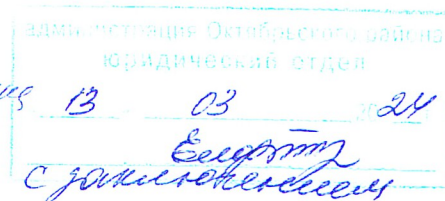 администрация Октябрьского района
юридический отдел
13 03 2024
с заключением